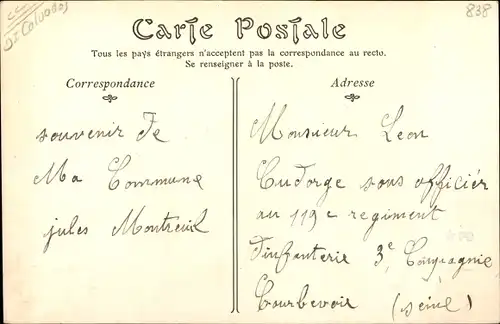 Dt Calvados
838
Carte Postale
Tous les pays étrangers n'acceptent pas la correspondance au recto.
Se renseigner à la poste.
Correspondance
souvenir de
Ma Commune
jules Montreuil
Adresse
Monsieur Leon
Cudorge sous officiér
au 119e regiment
Dinfanterie 3e Compagnie
Courbevoie (seine)